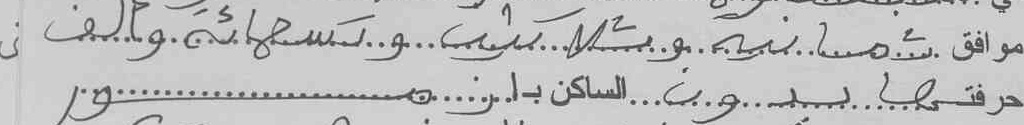 موافق ثمانية و ثلاثين و تسعمائة وألف
حرفتها بدون الساكن ب